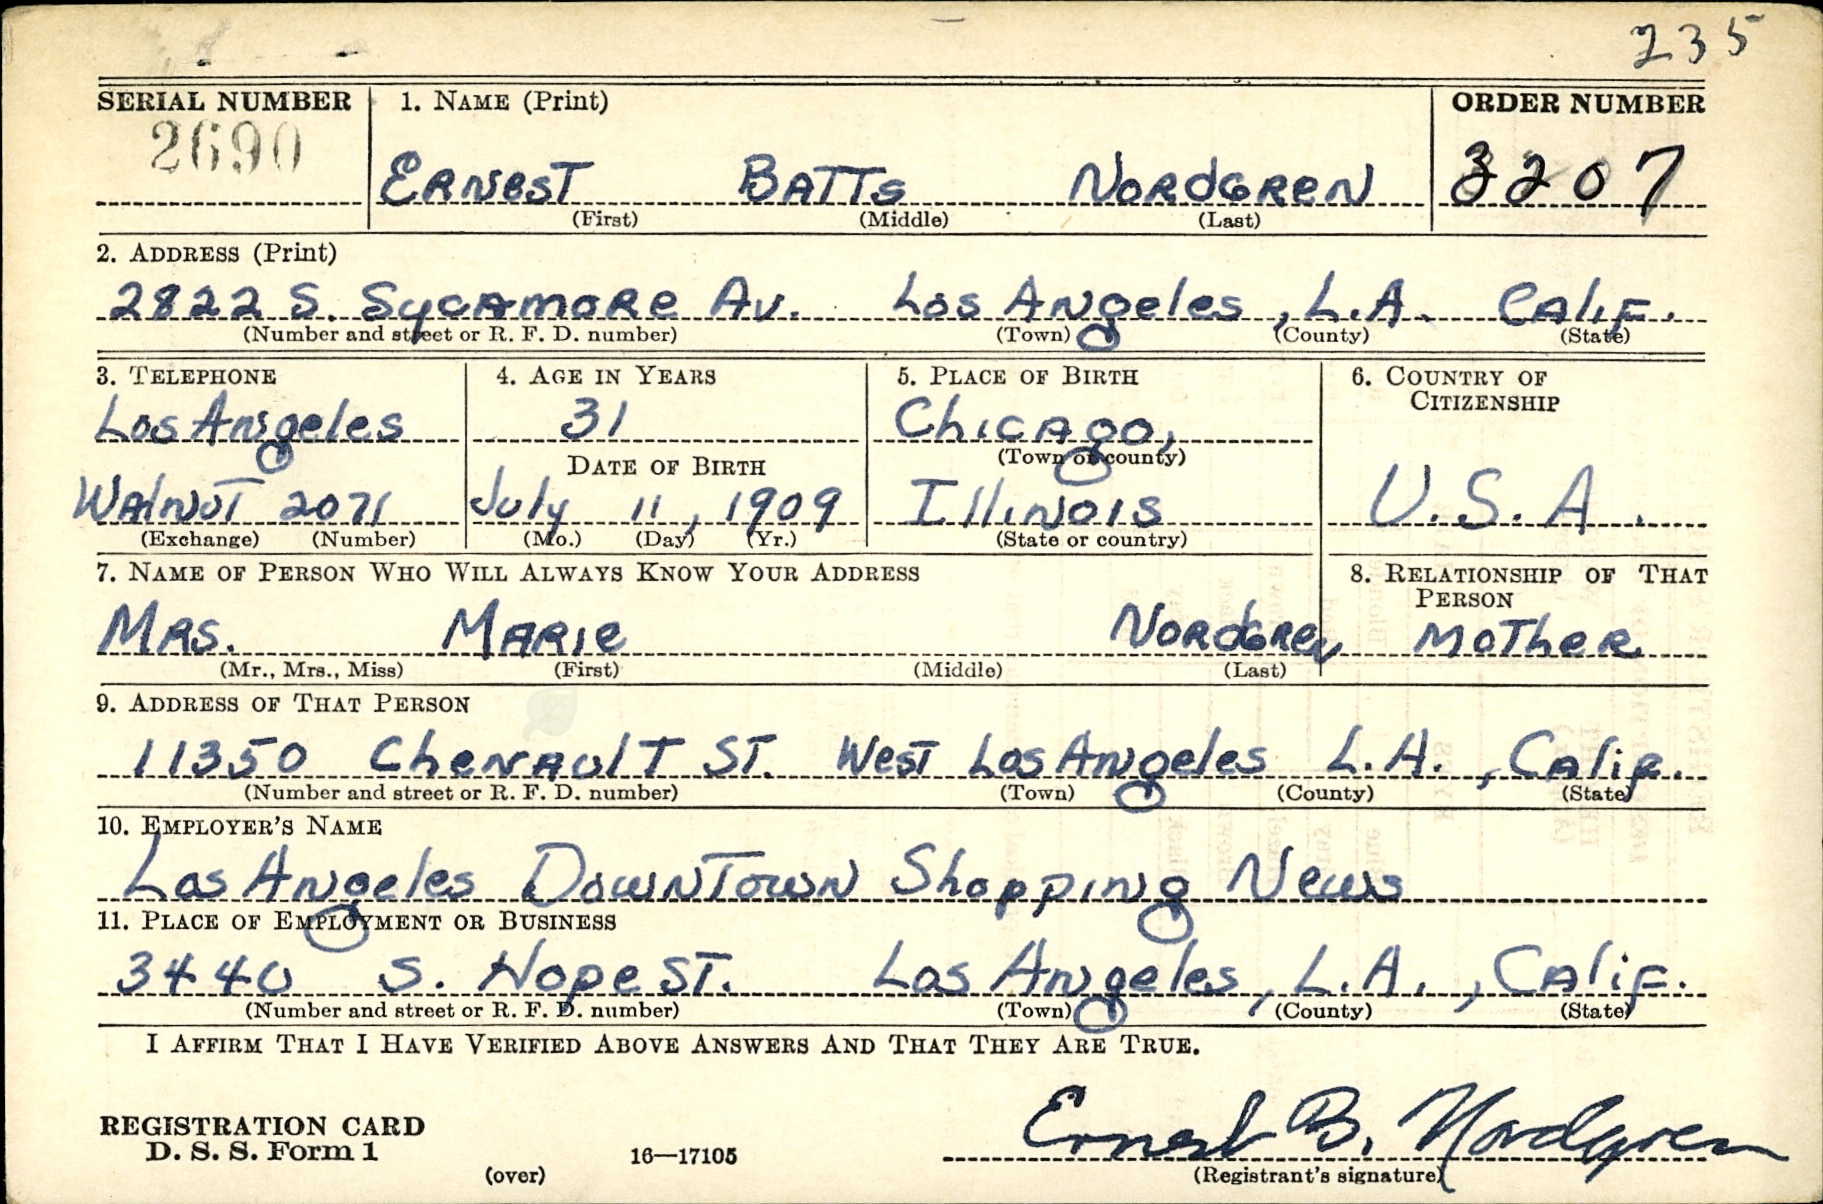 235
SERIAL NUMBER 1. NAME (Print) ORDER NUMBER
2690 ERNEST BATTS NORDGREN 3207
(First) (Middle) (Last)
2. ADDRESS (Print)
2822 S. SYCAMORE AV. LOS ANGeles, L.A. CAliF.
(Number and street or R. F. D. number) (Town) (County) (State)
3. TELEPHONE 4. AGE IN YEARS 5. PLACE OF BIRTH 6. COUNTRY OF CITIZENSHIP
Los Angeles 31 Chicago,
DATE OF BIRTH (Town or county)
WAlNUT 2071 July 11, 1909 IllINOIS U.S.A.
(Exchange) (Number) (Mo.) (Day) (Yr.) (State or country)
7. NAME OF PERSON WHO WILL ALWAYS KNOW YOUR ADDRESS 8. RELATIONSHIP OF THAT PERSON
MRS. MARIE NORDGREN MOTHER
(Mr., Mrs., Miss) (First) (Middle) (Last)
9. ADDRESS OF THAT PERSON
11350 CheNAulT ST. West Los Angeles L.A., CAliF.
(Number and street or R. F. D. number) (Town) (County) (State)
10. EMPLOYER'S NAME
Los Angeles DownTown Shopping News
11. PLACE OF EMPLOYMENT OR BUSINESS
3440 S. Hope ST. Los Angeles, L.A., CAliF.
(Number and street or R. F. D. number) (Town) (County) (State)
I AFFIRM THAT I HAVE VERIFIED ABOVE ANSWERS AND THAT THEY ARE TRUE.
REGISTRATION CARD
D. S. S. Form 1 Ernest B. Nordgren
(over) 16—17105 (Registrant's signature)